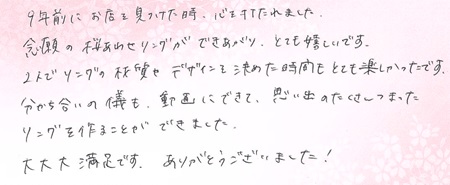 9年前にお店を見つけた時、心を打たれました。
念願の桜あわせリングができあがり、とても嬉しいです。
2人でリングの材質やデザインを決めた時間もとても楽しかったです。
分かち合いの儀も、動画にできて、思い出のたくさんつまった
リングを作ることができました。
大大大満足です。ありがとうございました!